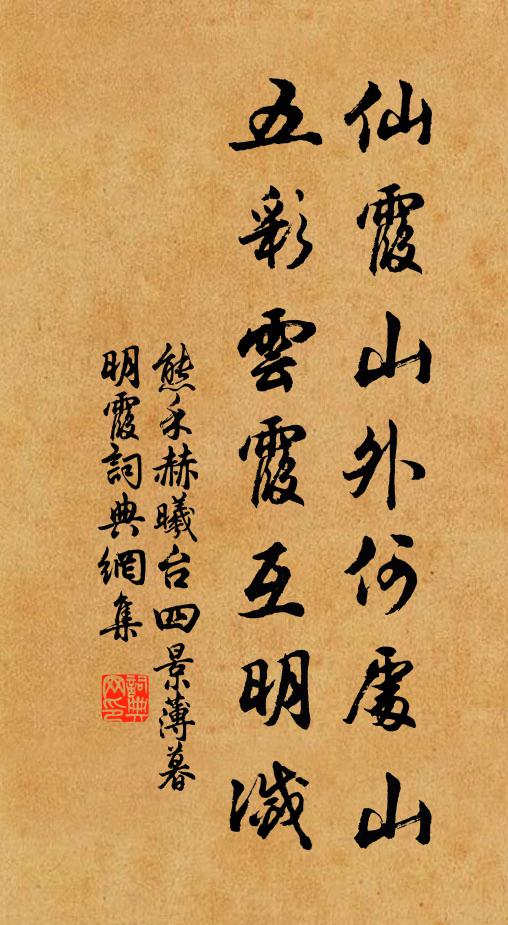 仙霞山外何處山
五彩雲霞互明滅
熊禾赫曦台四景薄暮
明霞詞典網集
詞典網印